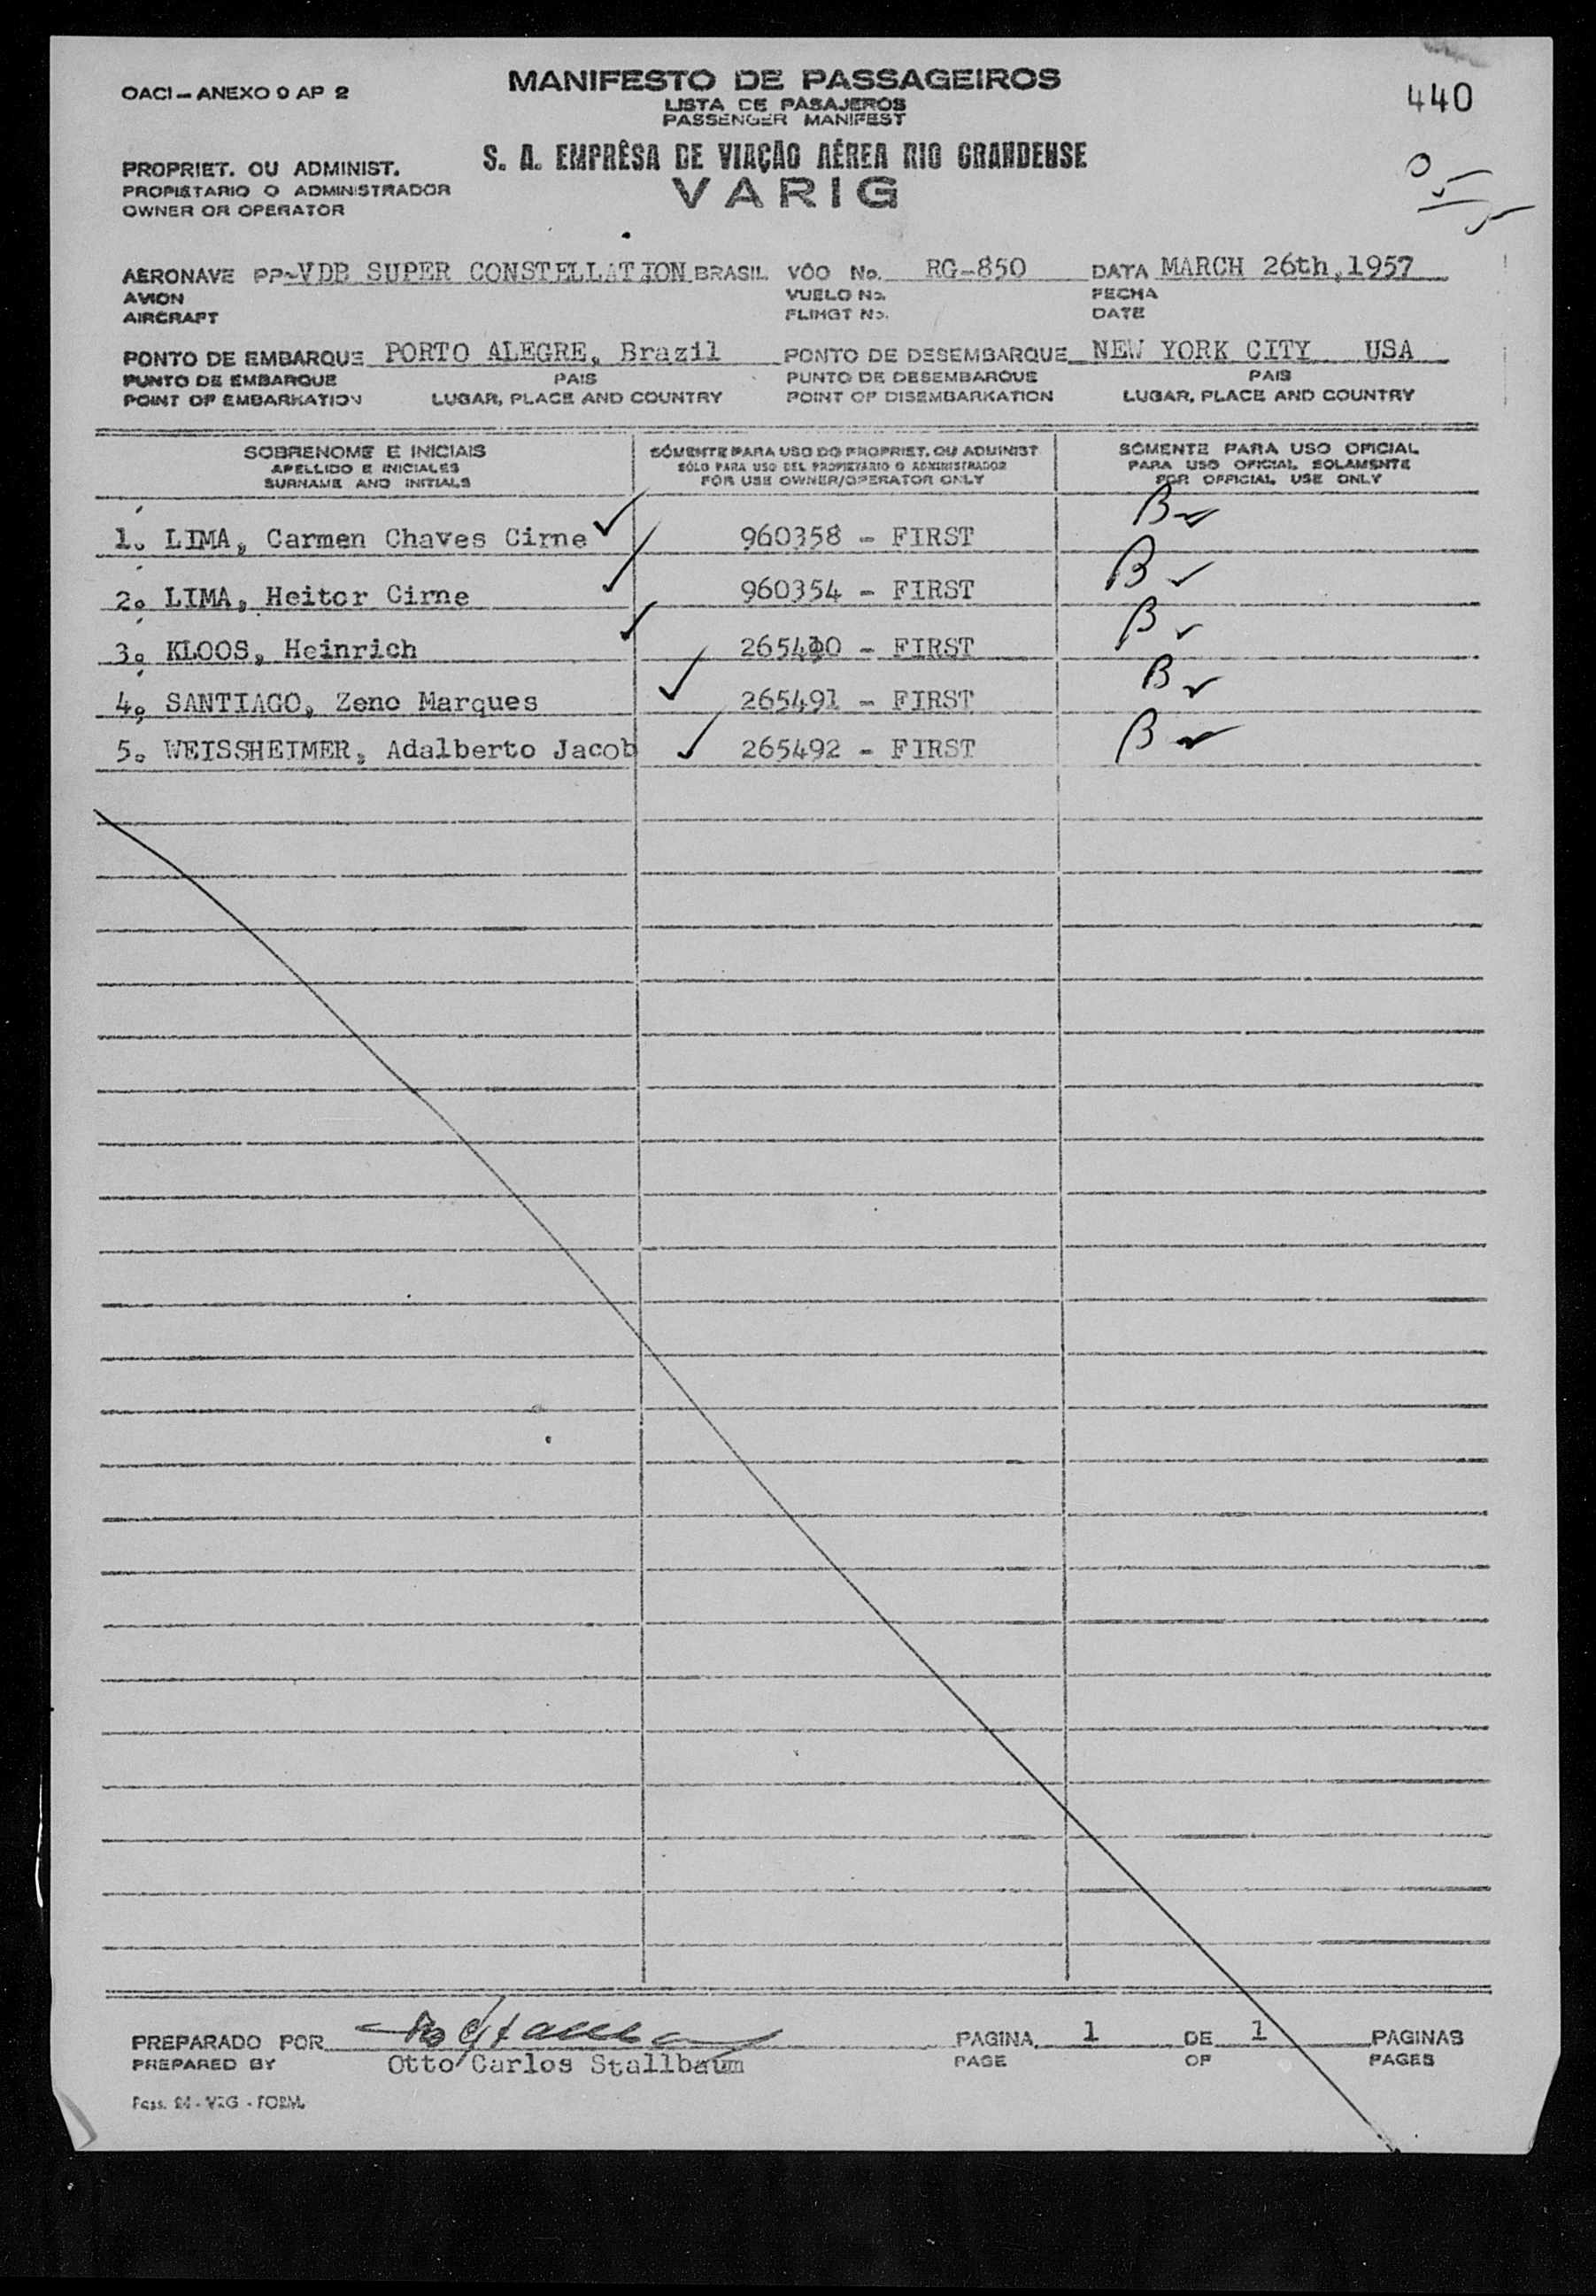 OACI - ANEXO 9 AP 2
MANIFESTO DE PASSAGEIROS
LISTA DE PASAJEROS
PASSENGER MANIFEST
440
S. A. EMPRÊSA DE VIAÇÃO AÉREA RIO GRANDENSE
VARIG
PROPRIET. OU ADMINIST.
PROPIETARIO O ADMINISTRADOR
OWNER OR OPERATOR
AERONAVE PP-VDB SUPER CONSTELLATION BRASIL VÔO No. RG-850 DATA MARCH 26th, 1957
AVION VUELO No. FECHA
AIRCRAFT FLIHGT No. DATE
PONTO DE EMBARQUE PORTO ALEGRE, Brazil PONTO DE DESEMBARQUE NEW YORK CITY USA
PUNTO DE EMBARQUE PAIS PUNTO DE DESEMBARQUE PAIS
POINT OF EMBARKATION LUGAR, PLACE AND COUNTRY POINT OF DISEMBARKATION LUGAR, PLACE AND COUNTRY
SOBRENOME E INICIAIS SÓMENTE PARA USO DO PROPRIET. OU ADMINIST SÓMENTE PARA USO OFICIAL
APELLIDO E INICIALES SÓLO PARA USO DEL PROPIETARIO O ADMINISTRADOR PARA USO OFICIAL SOLAMENTE
SURNAME AND INITIALS FOR USE OWNER/OPERATOR ONLY FOR OFFICIAL USE ONLY
1. LIMA, Carmen Chaves Cirne ✓ 960358 - FIRST B ✓
2. LIMA, Heitor Cirne ✓ 960354 - FIRST B ✓
3. KLOOS, Heinrich ✓ - FIRST B ✓
4. SANTIAGO, Zeno Marques ✓ 265491 - FIRST B ✓
5. WEISSHEIMER, Adalberto Jacob ✓ 265492 - FIRST B ✓
PREPARADO POR PAGINA 1 DE 1 PAGINAS
PREPARED BY Otto Carlos Stallbaum PAGE OF PAGES
Pass. - VRG - FORM.